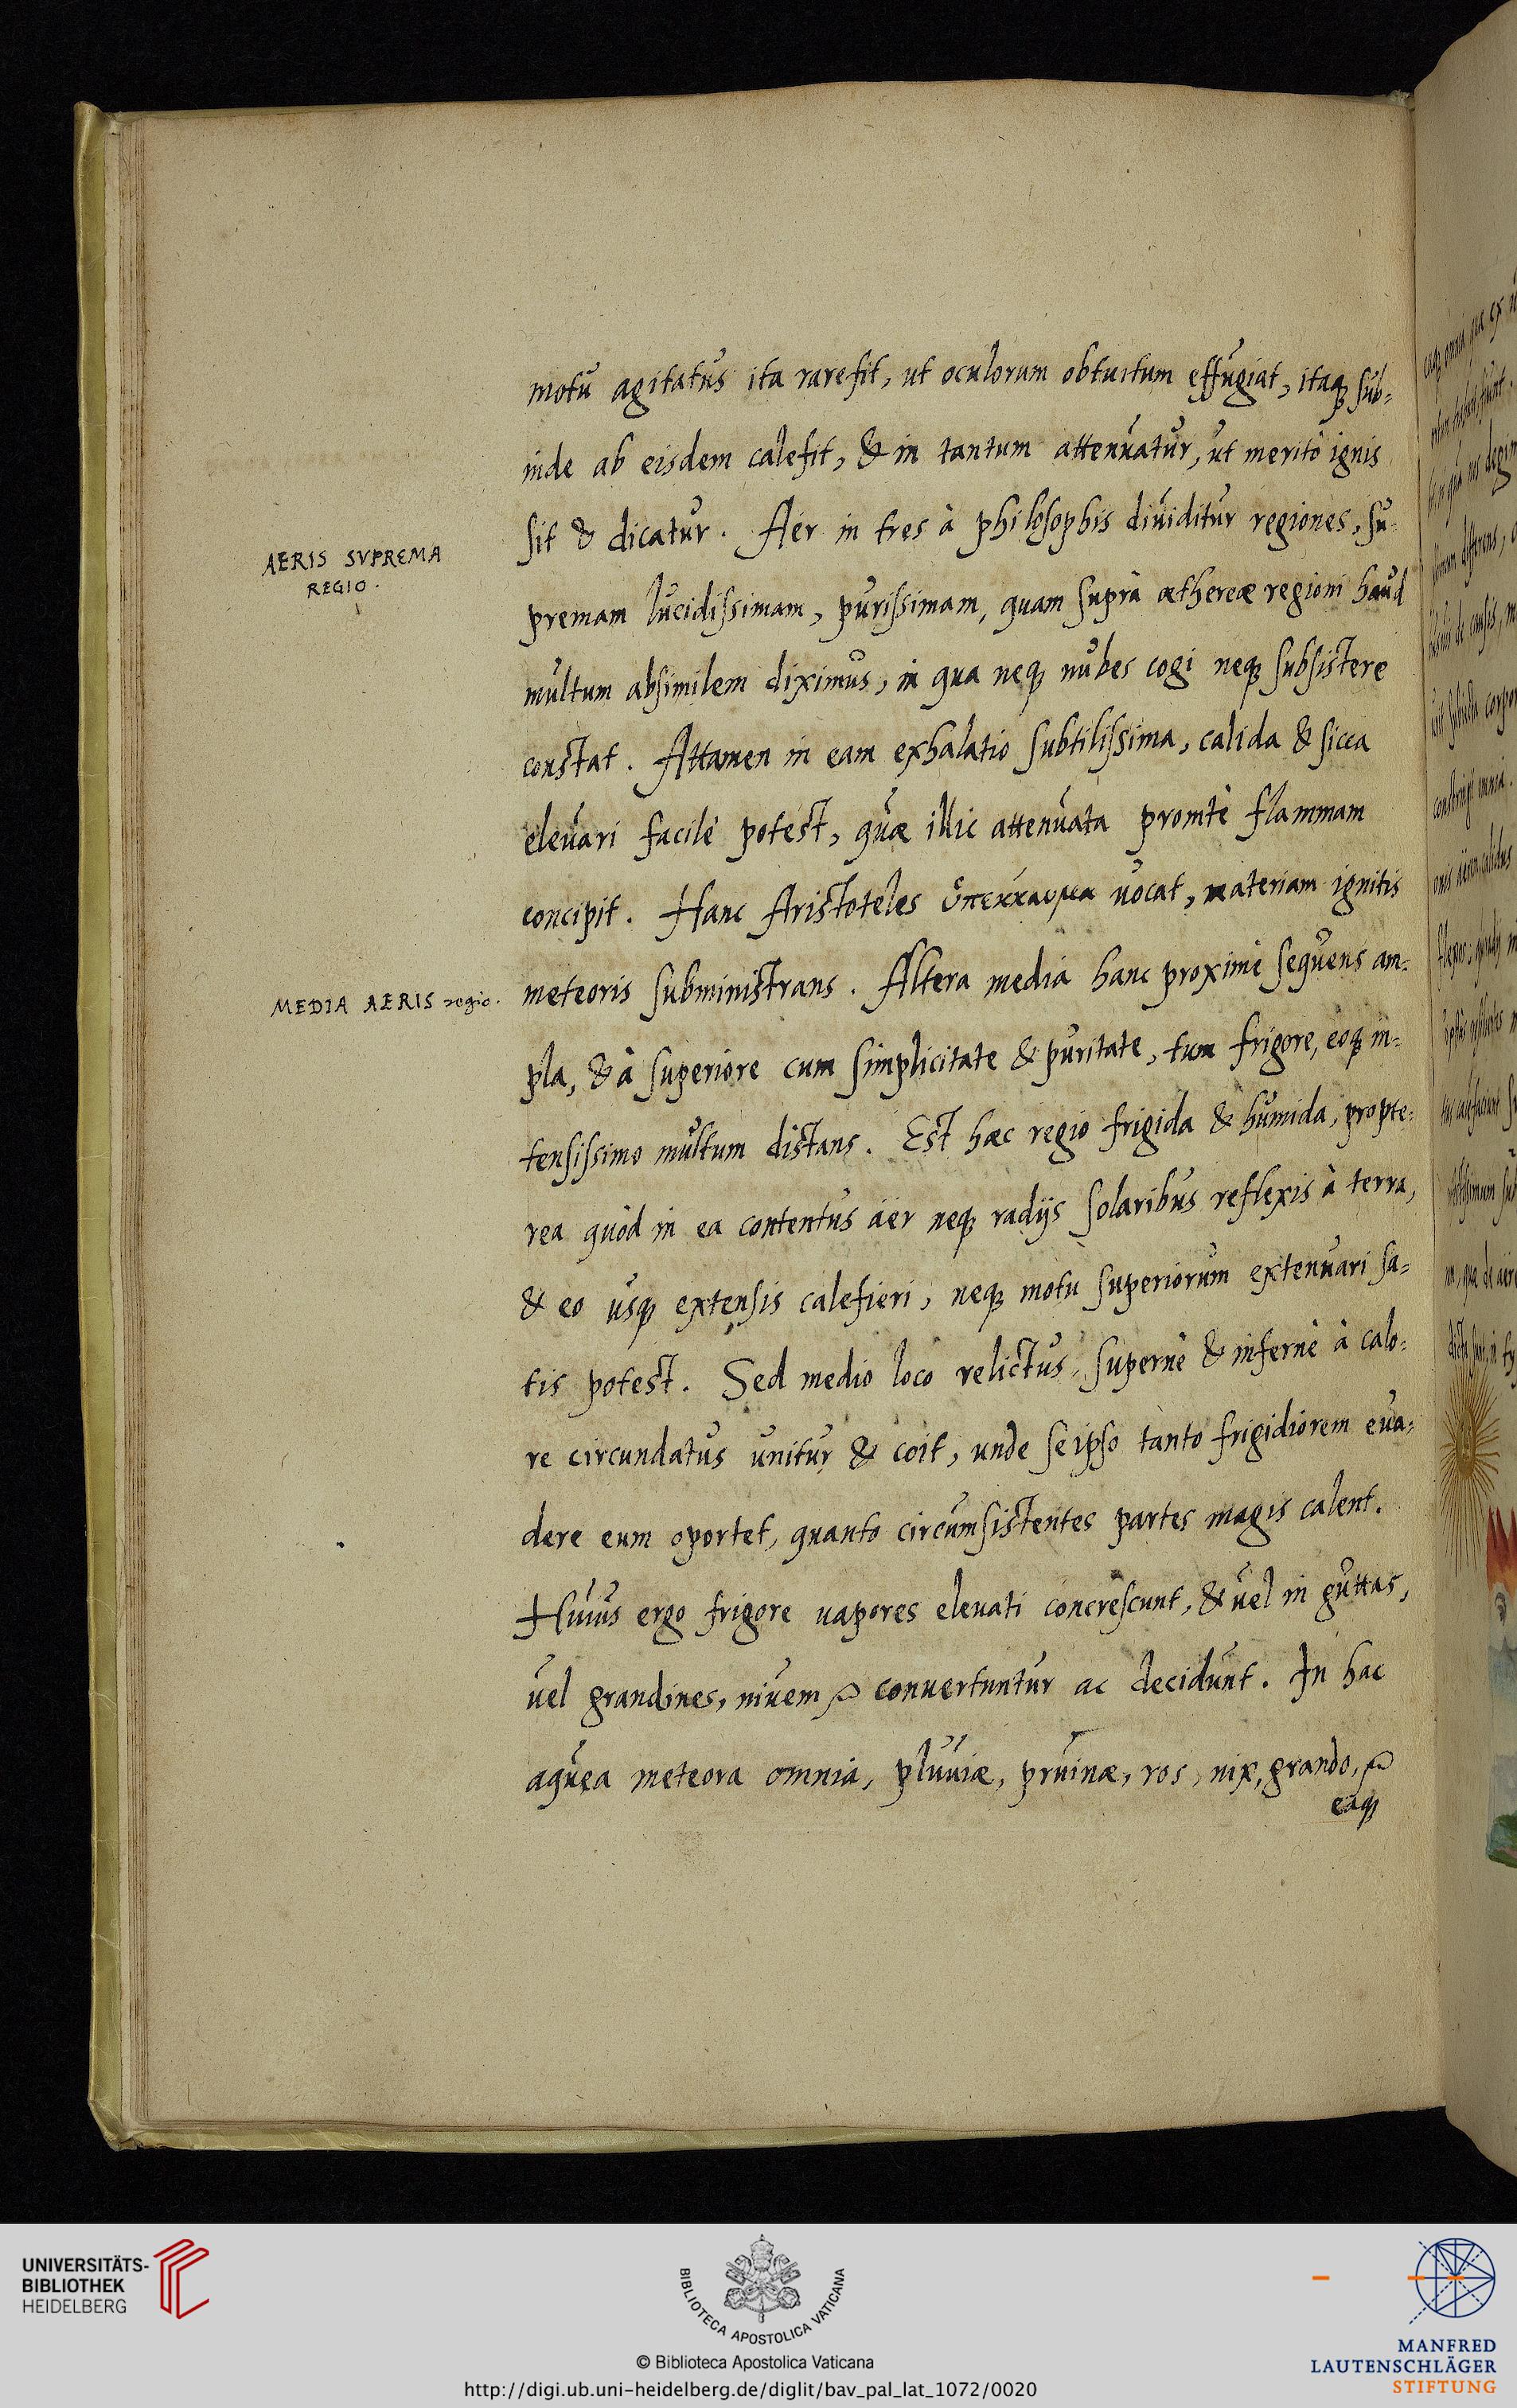 motu agitatus ita rarefit, ut oculorum obtutum effugiat, itaq; sub-
inde ab eisdem calefit, & in tantum attenuatur, ut meritò ignis
sit & dicatur. Aër in tres à philosophis diuiditur regiones, su-
AERIS SVPREMA
REGIO.
premam lucidissimam, purissimam, quam suprà æthereæ regioni haud
multum absimilem diximus, in qua neq; nubes cogi neq; subsistere
constat. Attamen in eam exhalatio subtilissima, calida & sicca
eleuari facilè potest, quæ illic attenuata promtè flammam
concipit. Hanc Aristoteles ὑπέκκαυμα uocat, materiam ignitis
MEDIA AERIS regio.
meteoris subministrans. Altera media hanc proximè sequens am-
pla, & à superiore cum simplicitate & puritate, tum frigore, eoq; in-
tensissimo multum distans. Est hæc regio frigida & humida, propte-
rea quòd in ea contentus aër neq; radijs solaribus reflexis à terra,
& eo usq; extensis calefieri, neq; motu superiorum extenuari sa-
tis potest. Sed medio loco relictus, supernè & infernè à calo-
re circundatus unitur & coit, unde seipso tanto frigidiorem eua-
dere eum oportet, quanto circumsistentes partes magis calent.
Huius ergo frigore uapores eleuati concrescunt, & uel in guttas,
uel grandines, niuem &c conuertuntur ac decidunt. In hac
aquea meteora omnia, pluuiæ, pruinæ, ros, nix, grando, &c
eaq;
UNIVERSITÄTS-
BIBLIOTHEK
HEIDELBERG
BIBLIOTECA APOSTOLICA VATICANA
© Biblioteca Apostolica Vaticana
http://digi.ub.uni-heidelberg.de/diglit/bav_pal_lat_1072/0020
MANFRED
LAUTENSCHLÄGER
STIFTUNG